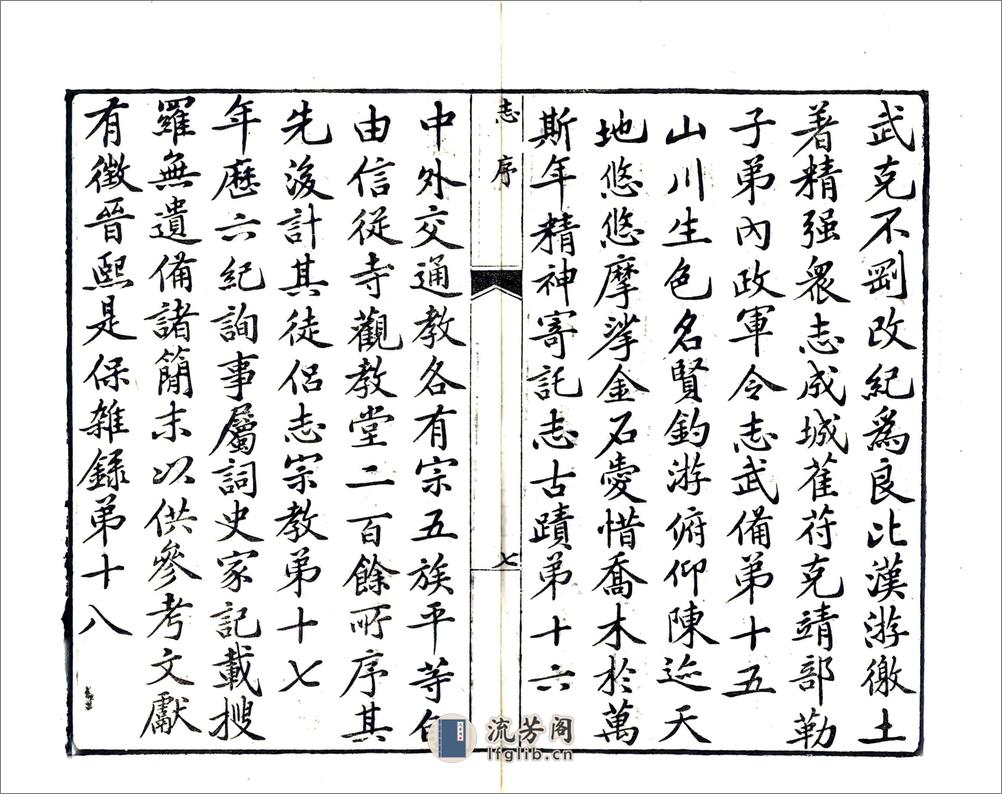 武克不剛改紀爲良比漢游徼土
著精强衆志成城萑苻克靖部勒
子弟內政軍令志武備第十五
山川生色名賢釣游俯仰陳迹天
地悠悠摩挲金石愛惜喬木於萬
斯年精神寄託志古蹟第十六
志 序 七
中外交通教各有宗五族平等
由信從寺觀教堂二百餘所序其
先後計其徒侶志宗教第十七
年歷六紀詢事屬詞史家記載搜
羅無遺備諸簡末以供參考文獻
有徵晉熙是保雑録第十八
流芳阁
lfglib.cn